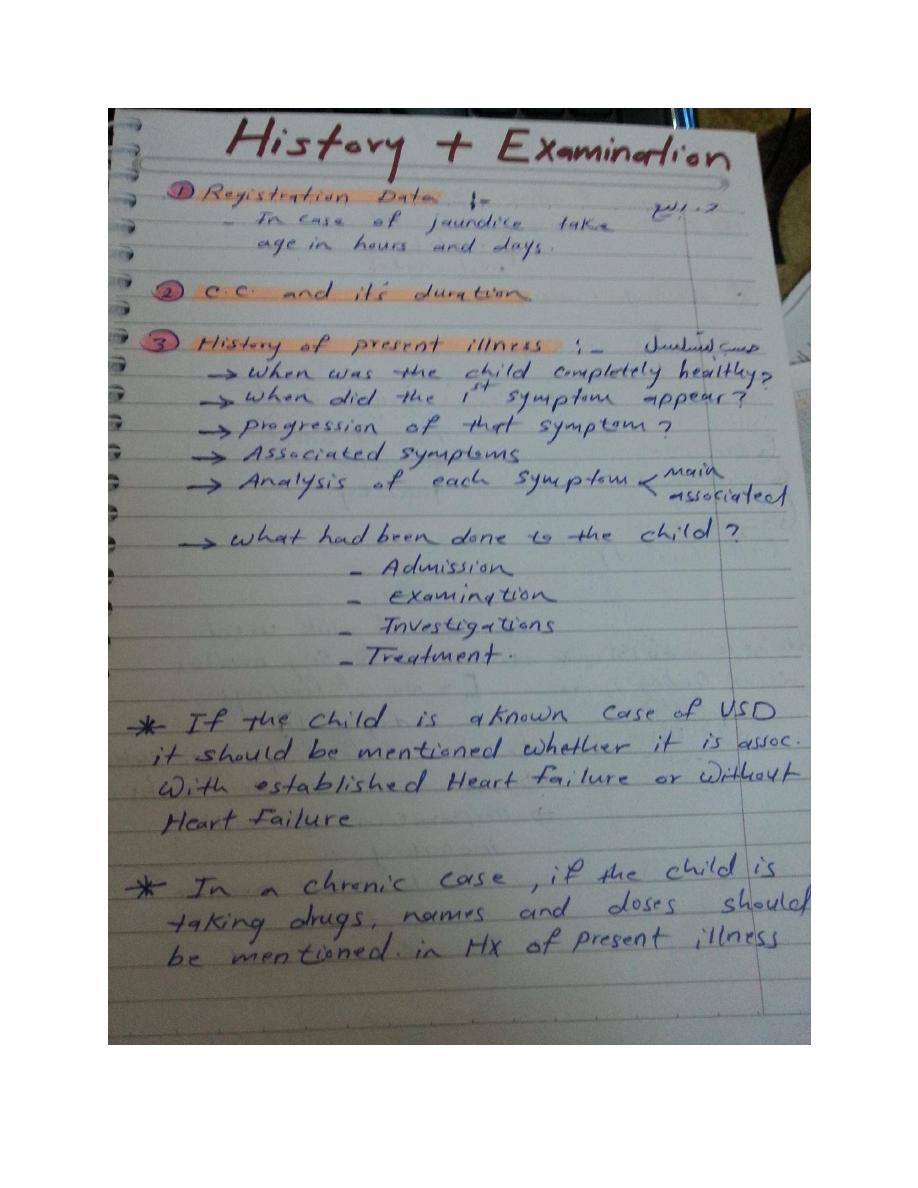 History + Examination
① Registration Data :-
- In case of jaundice take
age in hours and days.
② C.C. and it's duration
③ History of present illness :- حسب التسلسل
→ When was the child completely healthy?
→ When did the 1st symptom appear?
→ Progression of that symptom?
→ Associated symptoms
→ Analysis of each symptom < main
associated
→ What had been done to the child?
- Admission
- Examination
- Investigations
- Treatment.
* If the child is a known case of VSD
it should be mentioned whether it is assoc.
With established Heart failure or without
Heart Failure
* In a chronic case, if the child is
taking drugs, names and doses should
be mentioned in Hx of present illness